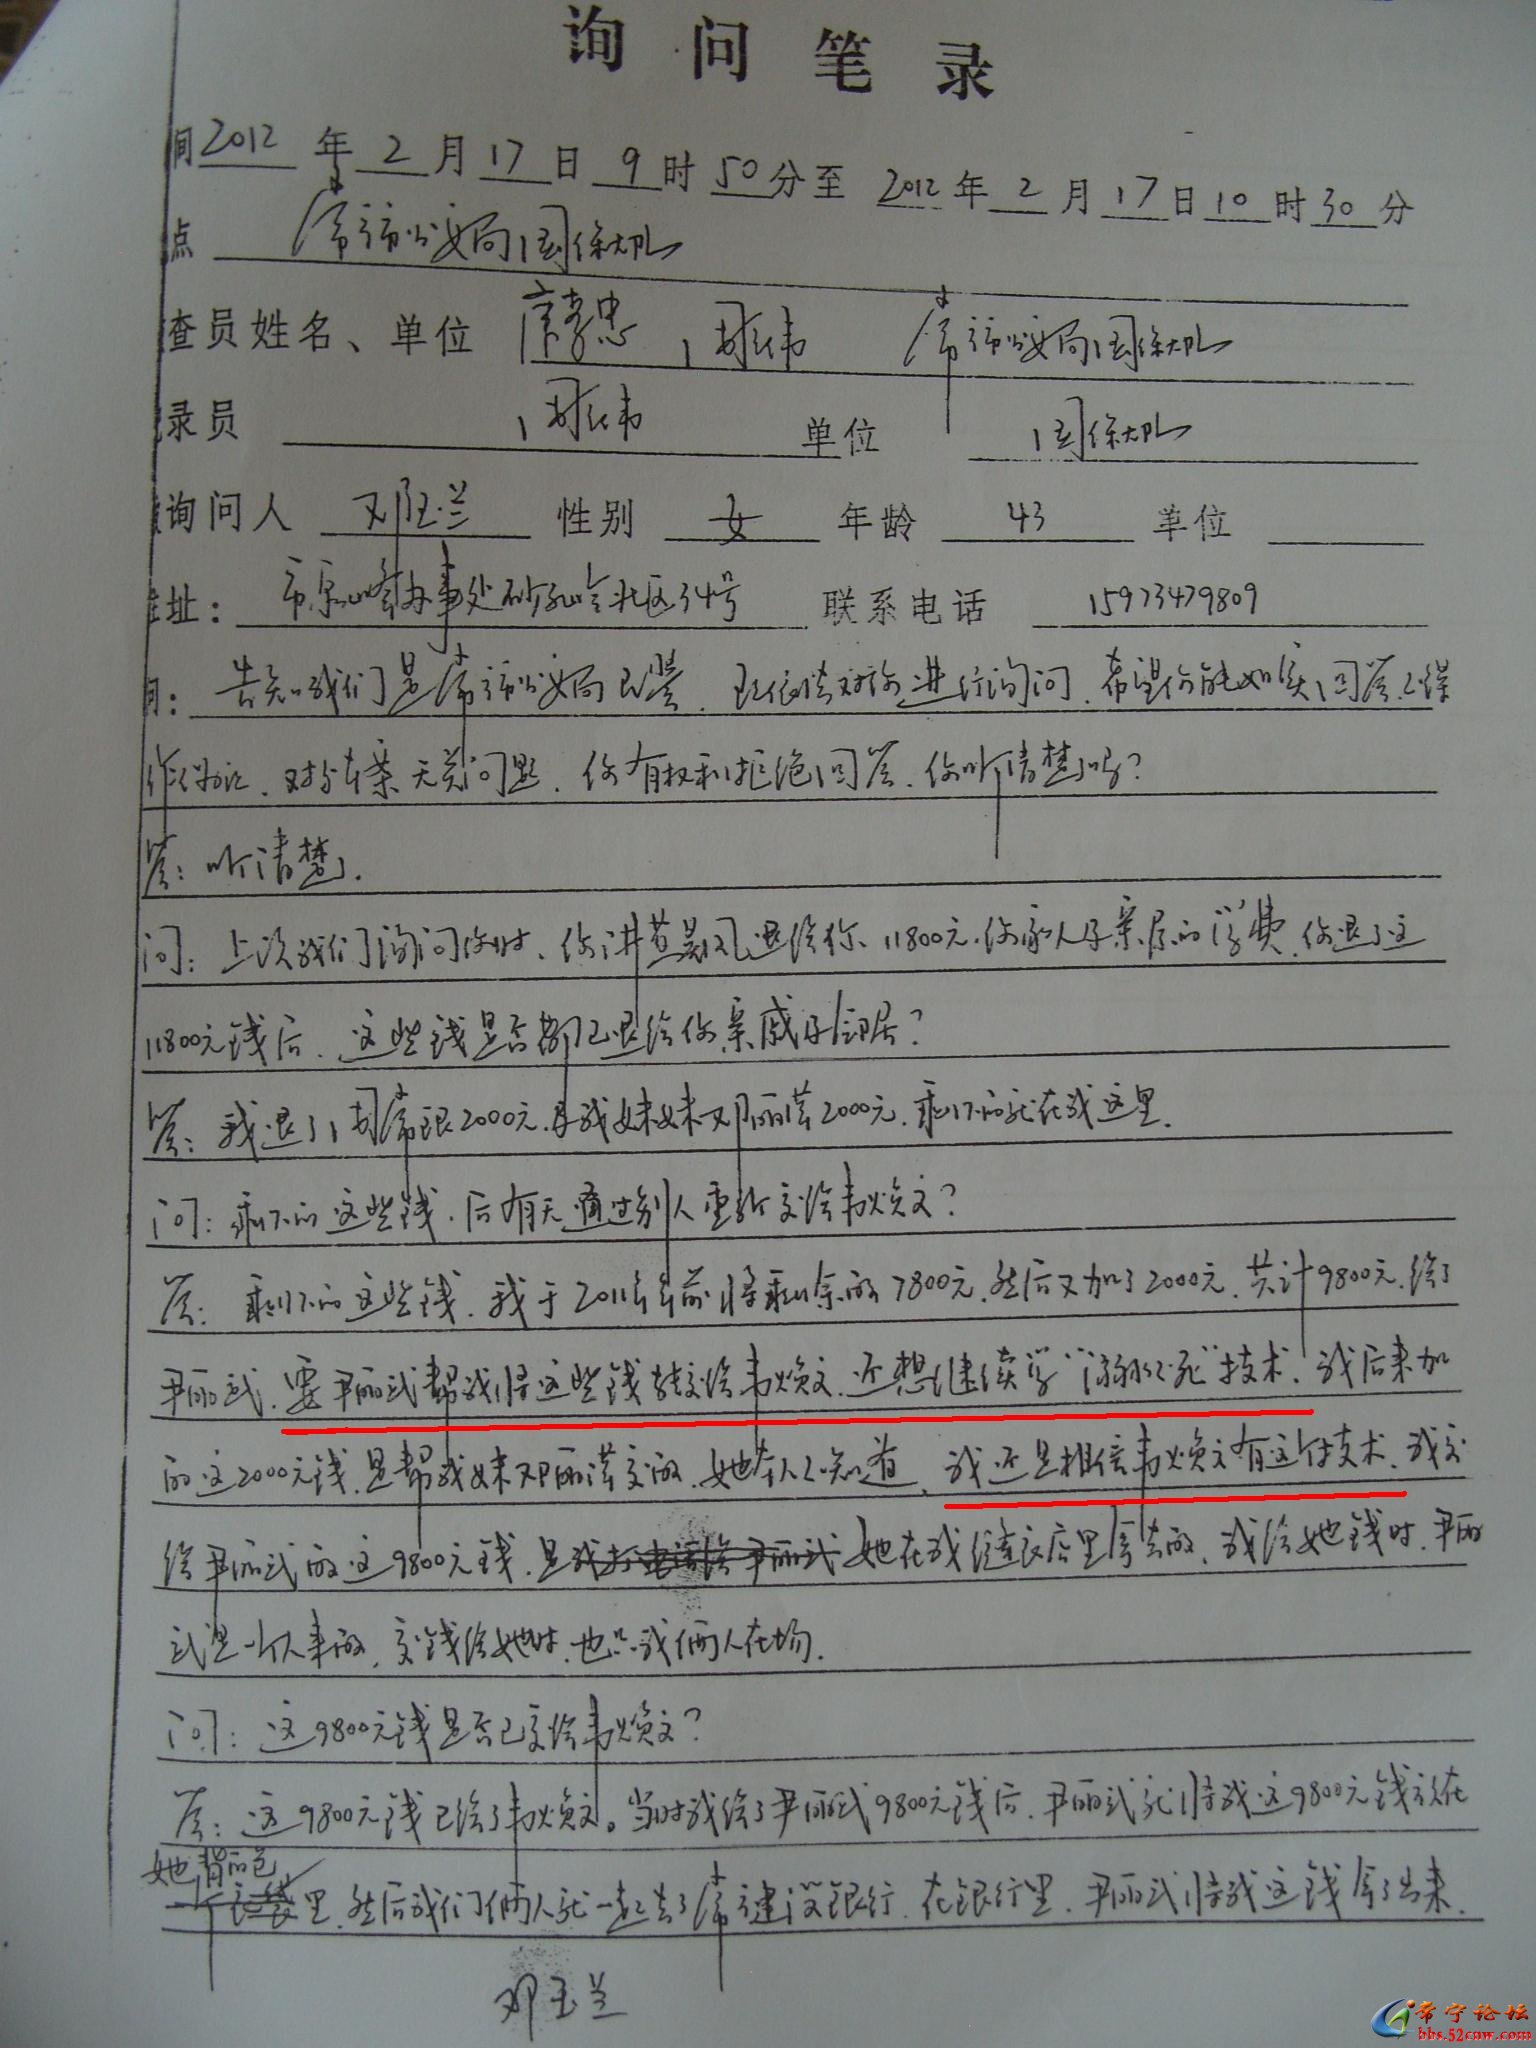 询问笔录
间 2012 年 2 月 17 日 9 时 50 分至 2012 年 2 月 17 日 10 时 30 分
点 常宁市公安局国保大队
查员姓名、单位 唐孝忠、周伟 常宁市公安局国保大队
录员 周伟 单位 国保大队
询问人 邓玉兰 性别 女 年龄 43 单位
址: 市泉峰办事处砂子岭北区34号 联系电话 15973479809
问: 告知我们是常宁市公安局民警，现依法对你进行询问，希望你能如实回答，不得
作伪证，对与本案无关问题，你有权利拒绝回答，你听清楚了吗？
答: 听清楚了.
问: 上次我们询问你时，你讲黄 凤退给你 11800元，你家人及亲戚的学费，你退了这
11800元钱后，这些钱是否都已退给你亲戚及邻居？
答: 我退了周常银2000元，及我妹妹邓丽萍2000元，剩下的就在我这里.
问: 剩下的这些钱，后有无通过别人重新交给韦焕文？
答: 剩下的这些钱，我于2011年年前将剩余的7800元，然后又加了2000元，共计9800元，给了
尹丽武，要尹丽武帮我将这些钱转交给韦焕文，还想继续学“ 不死”技术，我后来加
的这2000元钱，是帮我妹邓丽萍交的，她本人不知道，我还是相信韦焕文有这个技术，我交
给尹丽武的这9800元钱，是我打电话给尹丽武她在我缝衣店里拿去的，我给她钱时，尹丽
武是一个人来的，交钱给她时，也只我俩人在场.
问: 这9800元钱是否已交给韦焕文？
答: 这9800元钱已给了韦焕文。当时我给了尹丽武9800元钱后，尹丽武就将我这9800元钱放在
她背的包
里，然后我们俩人就一起去了常宁建设银行，在银行里，尹丽武将我这钱拿了出来.
邓玉兰
常宁论坛
bbs.52cnw.com